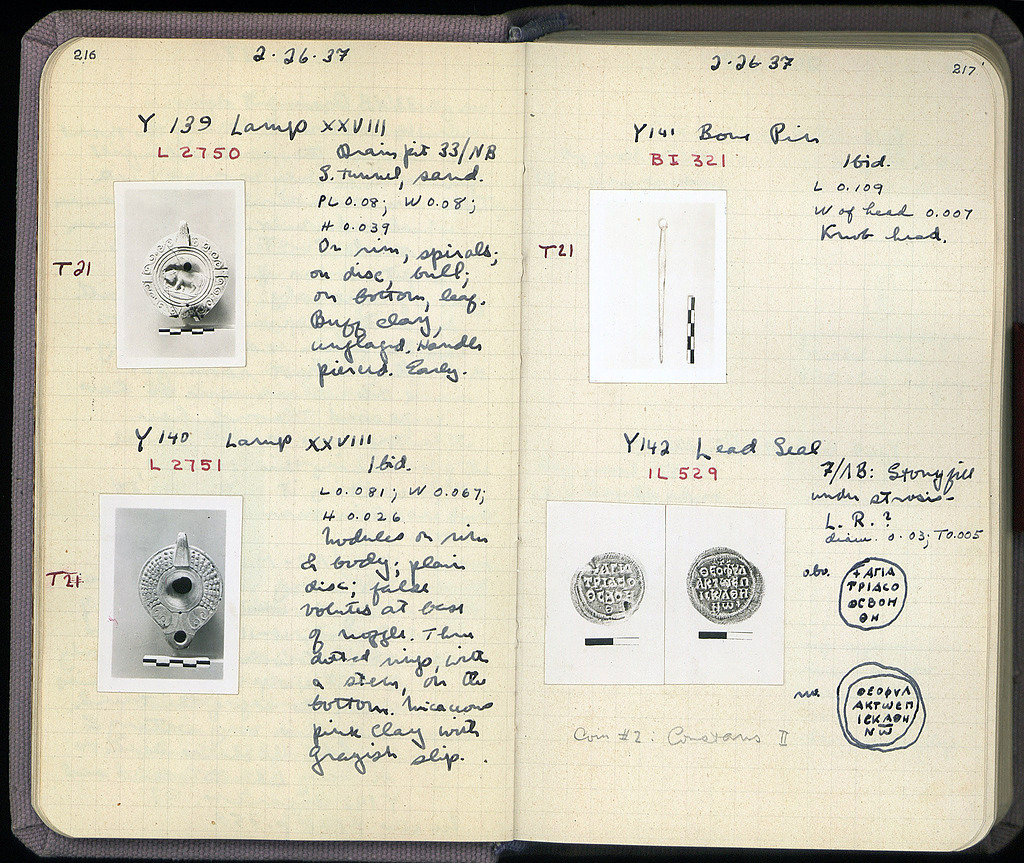 216
2·26·37
Y 139 Lamp XXVIII
L 2750
Drain pit 33/NB
S. tunnel, sand.
PL 0.08; W 0.08;
H 0.039
T21
On rim, spirals;
on disc, bull;
on bottom, leaf.
Buff clay,
unglazed. Handle
pierced. Early.
Y 140 Lamp XXVIII
L 2751
Ibid.
L 0.081; W 0.067;
H 0.026
Nodules on rim
& body; plain
disc; false
volutes at base
T21
of nozzle. Three
dotted rings, with
a stem, on the
bottom. Micaceous
pink clay with
grayish slip.
217
2·26·37
Y141 Bone Pin
BI 321
Ibid.
L 0.109
W of head 0.007
Knob head.
T21
Y142 Lead Seal
IL 529
7/ΛB: Stony fill
under strosis-
L. R. ?
diam. 0.03; T0.005
+ΑΓΙΑ
ΤΡΙΑCΟ
ΘCΒΟΗ
ΘΗ
ΘΕΟΦΥΛ
ΑΚΤѠΕΠ
ΙCΚΑΘΗ
ΝѠ
obv.
+ΑΓΙΑ
ΤΡΙΑCΟ
ΘCΒΟΗ
ΘΗ
rev.
ΘΕΟΦΥΛ
ΑΚΤѠΕΠ
ΙCΚΑΘΗ
ΝѠ
Coin #2: Constans II